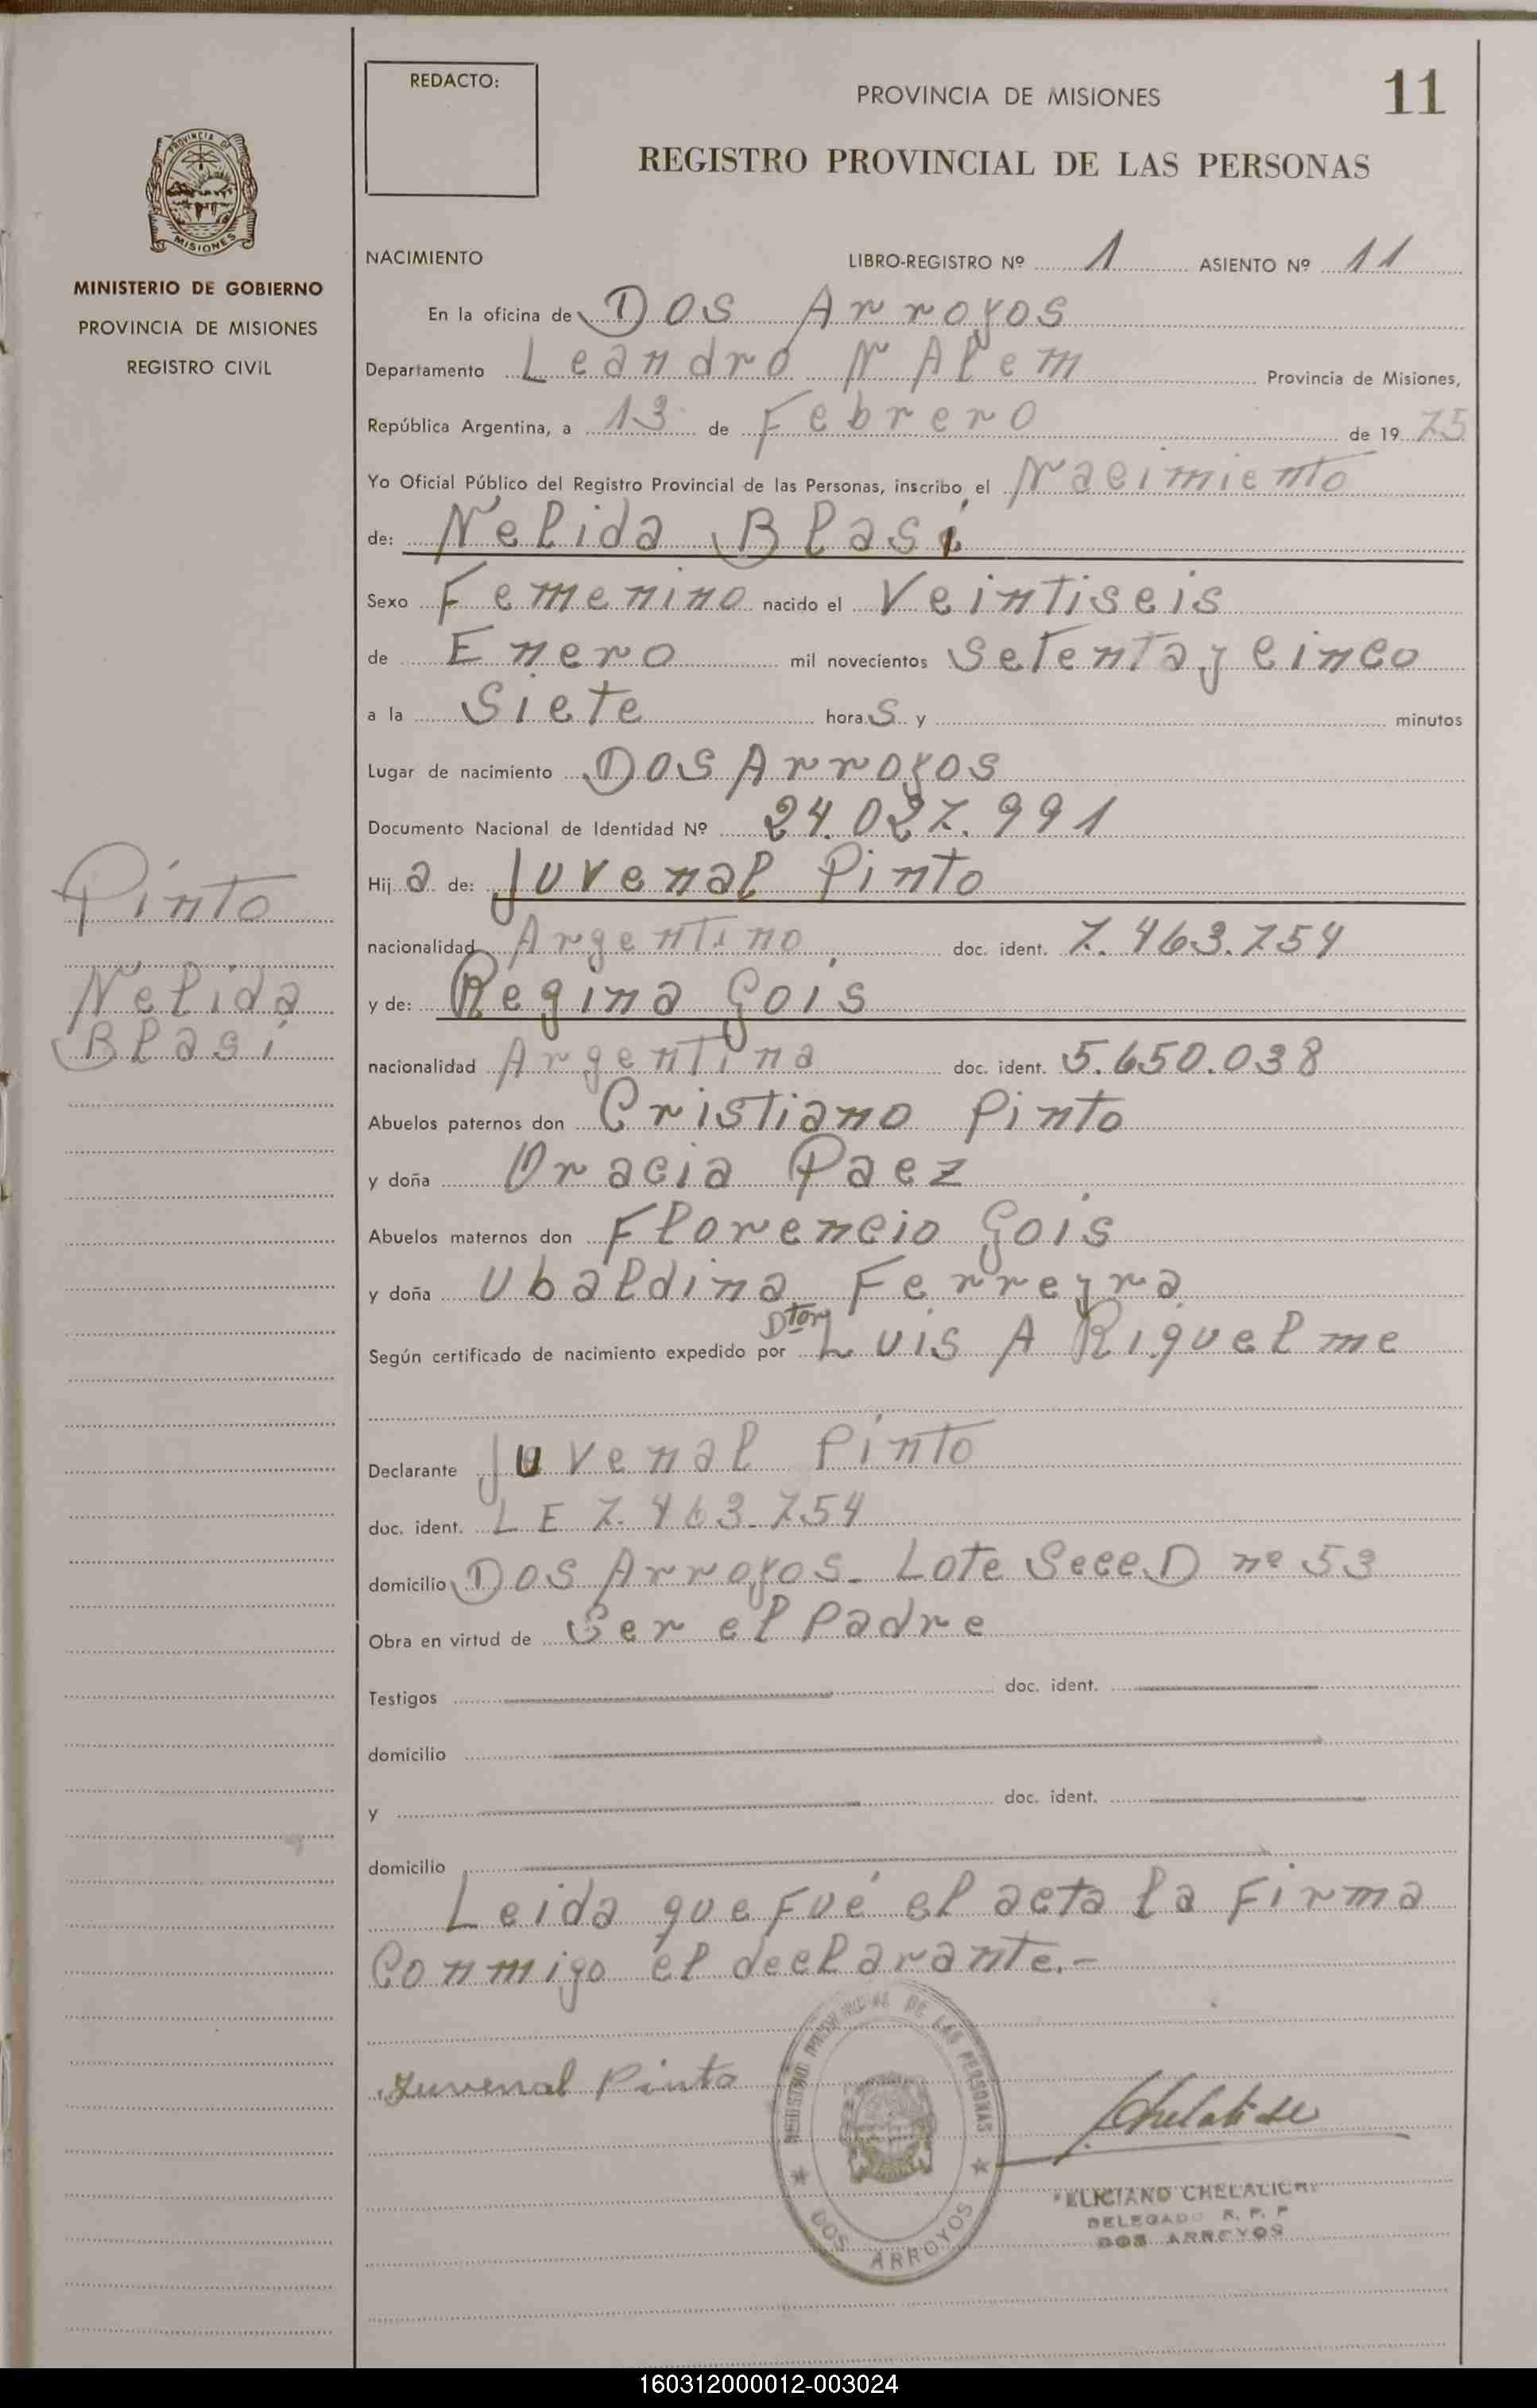 REDACTO:
PROVINCIA DE MISIONES
11
REGISTRO PROVINCIAL DE LAS PERSONAS
PROVINCIA DE
MISIONES
MINISTERIO DE GOBIERNO
PROVINCIA DE MISIONES
REGISTRO CIVIL
NACIMIENTO LIBRO-REGISTRO Nº 1 ASIENTO Nº 11
En la oficina de Dos Arroyos
Departamento Leandro N Alem Provincia de Misiones,
República Argentina, a 13 de Febrero de 1975
Yo Oficial Público del Registro Provincial de las Personas, inscribo el Nacimiento
de: Nelida Blasi
Sexo Femenino nacido el Veintiseis
de Enero mil novecientos Setenta y cinco
a la Siete hora S y minutos
Lugar de nacimiento Dos Arroyos
Documento Nacional de Identidad Nº 24.027.991
Hij a de: Juvenal Pinto
nacionalidad Argentino doc. ident. 7.463.754
y de: Regina Gois
nacionalidad Argentina doc. ident. 5.650.038
Abuelos paternos don Cristiano Pinto
y doña Oracia Paez
Abuelos maternos don Florencio Gois
y doña Ubaldina Ferreyra
Según certificado de nacimiento expedido por Dtor Luis A Riquelme
Declarante Juvenal Pinto
doc. ident. L E 7.463.754
domicilio Dos Arroyos - Lote Secc D nº 53
Obra en virtud de Ser el Padre
Testigos doc. ident.
domicilio
y doc. ident.
domicilio
Leida que Fué el acta la Firma
Conmigo el declarante.-
Pinto
Nelida
Blasi
Juvenal Pinto
REGISTRO PROVINCIAL DE LAS PERSONAS
DOS ARROYOS
DELEGADO R. P. P
DOS ARROYOS
160312000012-003024